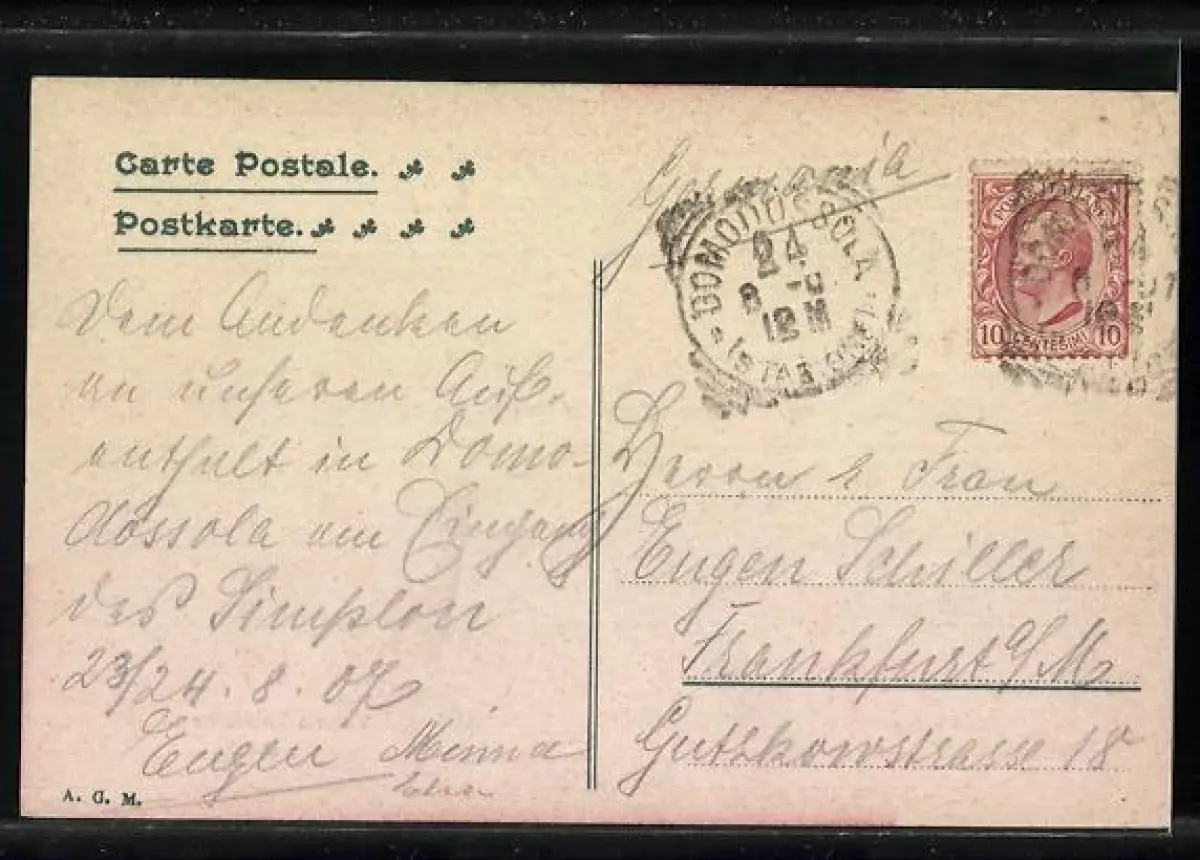 Carte Postale.
Postkarte.
Dem Andenken
an unseren Auf-
enthalt in Domo-
dossola am Eingang
des Simplon
23/24. 8. 07
Eugen Minna
A. G. M.
Germania
DOMODOSSOLA
24
8
12 M
POSTE ITALIANE
10 CENTESIMI 10
Herrn & Frau
Eugen Schiller
Frankfurt a/M
Gutzkowstrasse 18